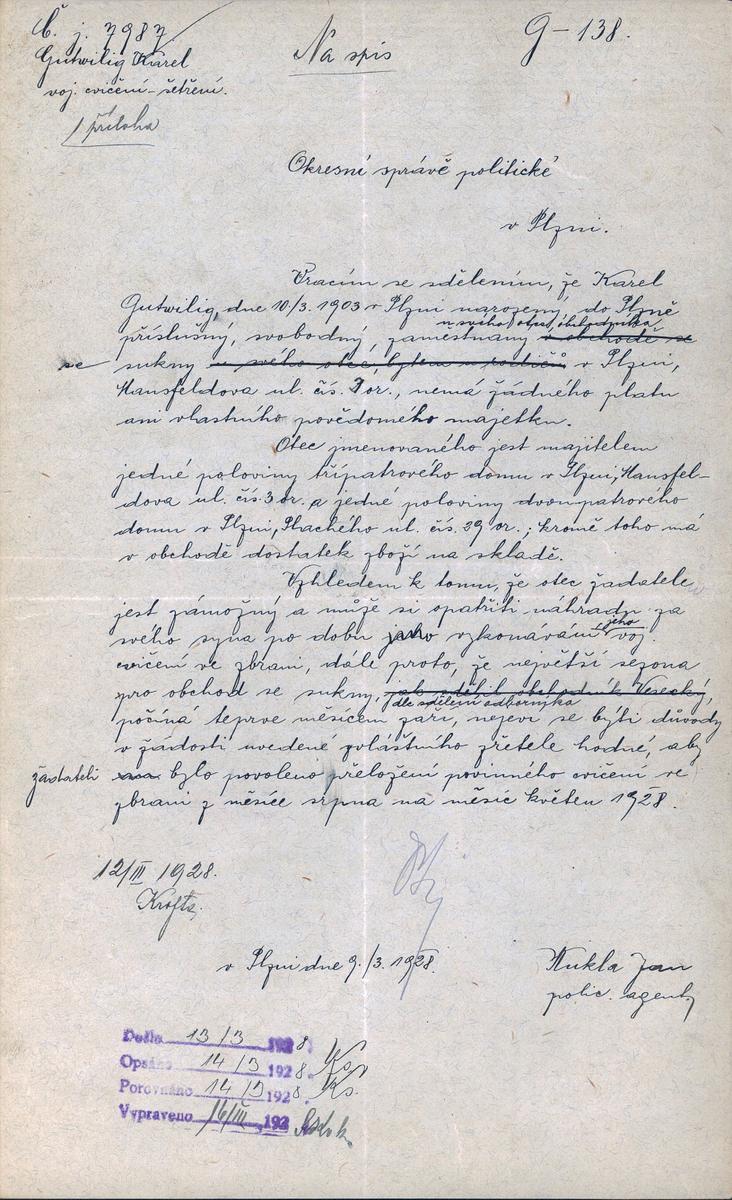 Č. j. 7987
Gutwilig Karel
voj. cvičení - šetření.
1 příloha
Na spis
G - 138.
Okresní správě politické
v Plzni.
Vracím se sdělením, že Karel
Gutwilig, dne 10./3. 1903 v Plzni narozený, do Plzně
u svého otce, obchodníka
příslušný, svobodný, zaměstnaný v obchodě se
se sukny u svého otce, bytem u rodičů v Plzni,
Mansfeldova ul. čís. 3 or., nemá žádného platu
ani vlastního povědomého majetku.
Otec jmenovaného jest majitelem
jedné poloviny třípatrového domu v Plzni, Mansfel-
dova ul. čís. 3 or. a jedné poloviny dvoupatrového
domu v Plzni, Plachého ul. čís. 39 or.; kromě toho má
v obchodě dostatek zboží na skladě.
Vzhledem k tomu, že otec žadatele
jest zámožný a může si opatřiti náhradu za
svého syna po dobu jeho vykonávání voj.
cvičení ve zbrani, dále proto, že největší sezona
pro obchod se sukny, jak sdělil obchodník Veseský,
dle sdělení odborníka
počíná teprve měsícem září, nejeví se býti důvody
v žádosti uvedené zvláštního zřetele hodné, aby
žadateli bylo povoleno přeložení povinného cvičení ve
zbrani z měsíce srpna na měsíc květen 1928.
12/III 1928.
Krofta.
v Plzni dne 9./3. 1928.
Nukla Jan
polic. agent
Došlo 13/3 1928.
Opsáno 14/3 1928.
Porovnáno 14/3 1928. Ks.
Vypraveno 16/III 192